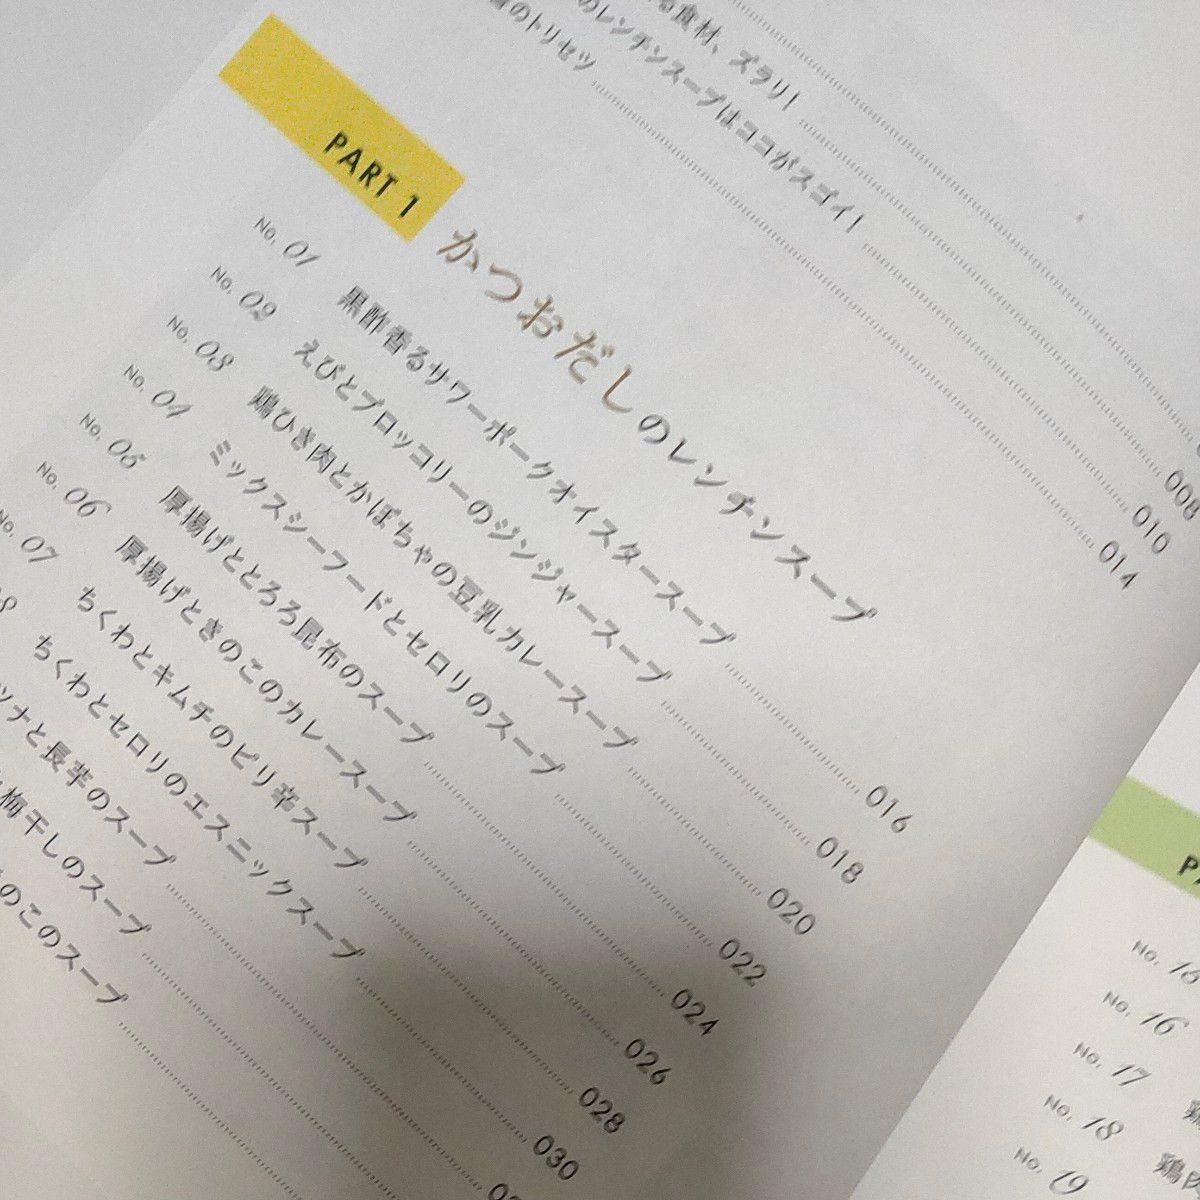 る食材、ズラリ! 008
のレンチンスープはココがスゴイ! 010
のトリセツ 014
PART 1 かつおだしのレンチンスープ
No. 01 黒酢香るサワーポークオイスタースープ 016
No. 02 えびとブロッコリーのジンジャースープ 018
No. 03 鶏ひき肉とかぼちゃの豆乳カレースープ 020
No. 04 ミックスシーフードとセロリのスープ 022
No. 05 厚揚げととろろ昆布のスープ 024
No. 06 厚揚げときのこのカレースープ 026
No. 07 ちくわとキムチのピリ辛スープ 028
ちくわとセロリのエスニックスープ 030
ツナと長芋のスープ
梅干しのスープ
のこのスープ
No. 16
No. 17
No. 18
No. 19